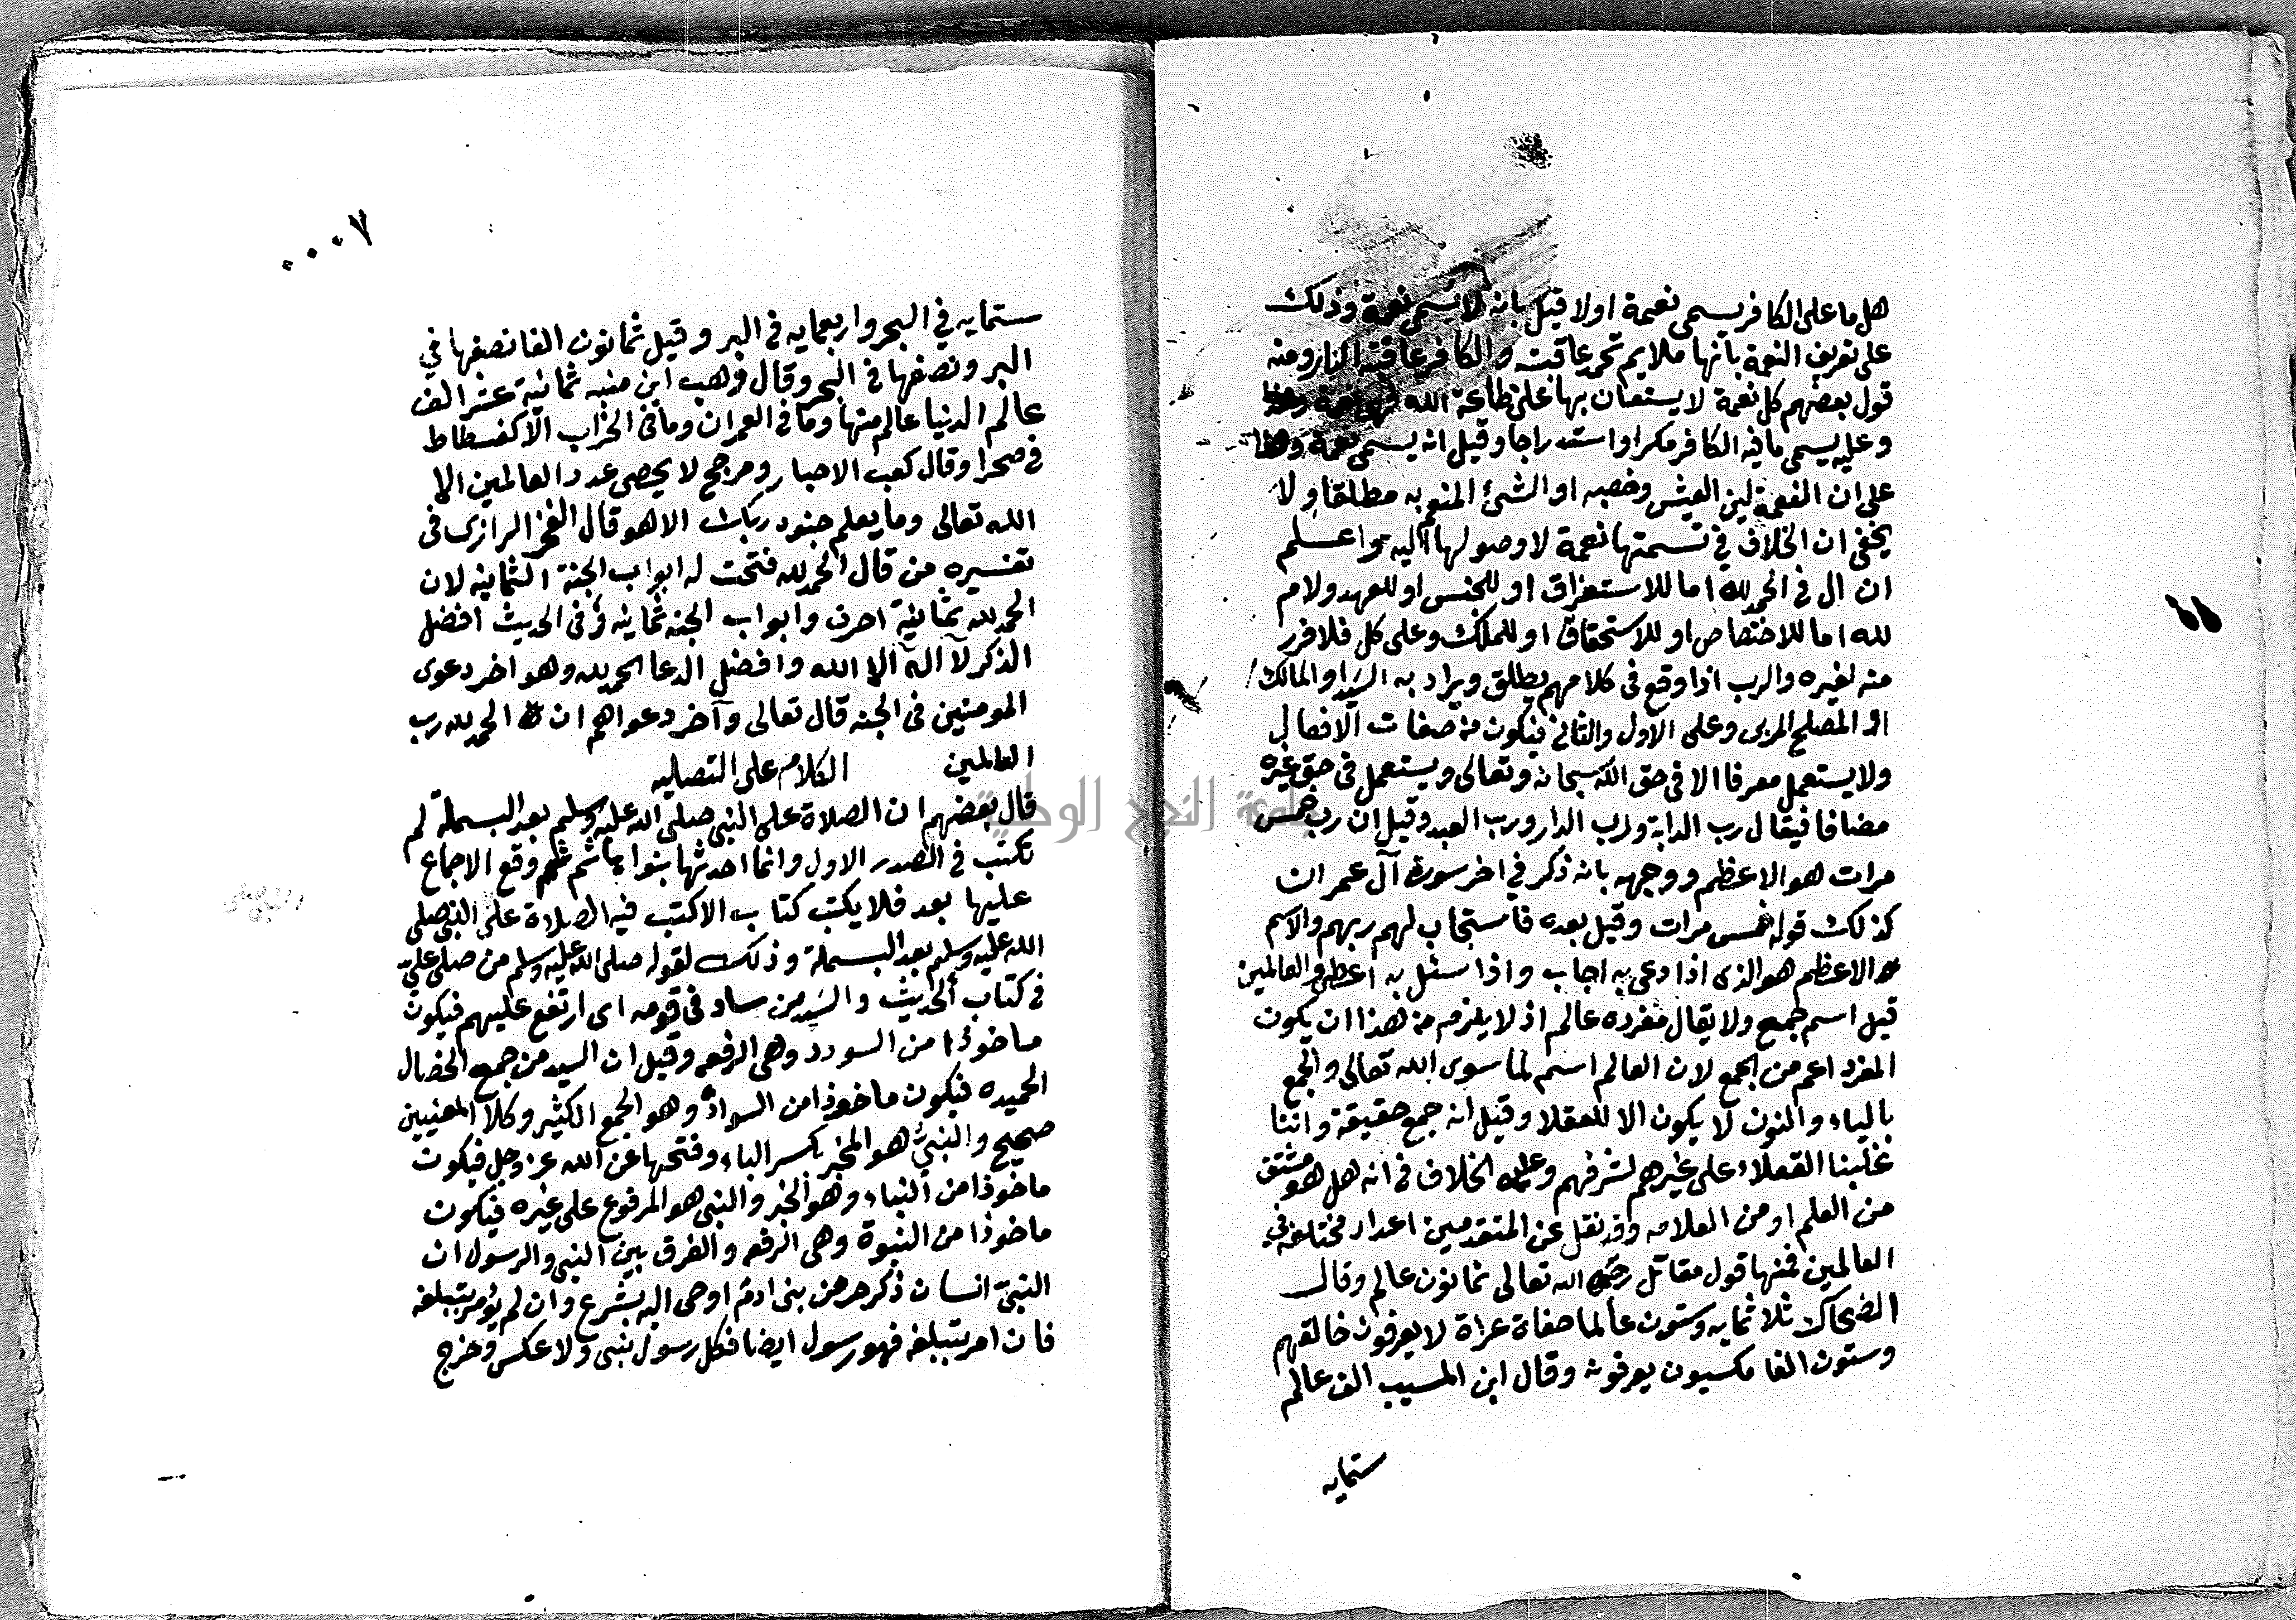 هل ما على الكافر يسمى نعمة اولا قيل بانه لا يسمى نعمة وذلك
على تعريف النعمة بانها ملايم تحمد عاقبته والكافر عاقبته النار ومنه
قول بعضهم كل نعمة لا يستعان بها على طاعة الله فهي نقمة
وعليه يسمى ما فيه الكافر مكرا واستدراجا وقيل انه يسمى نعمة وهذا
على ان النعمة لين العيش وخصبه او الشئ المنعم به مطلقا ولا
يخفى ان الخلاف في تسميتها نعمة لا وصولها اليه واعلم
ان ال في الحمد لله اما للاستغراق او للجنس او للعهد ولام
لله اما للاختصاص او للاستحقاق او للملك وعلى كل فلا فرد
منه لغيره والرب اذا وقع في كلامهم يطلق ويراد به السيد او المالك
او المصلح المربى وعلى الاول والثاني فيكون من صفات الافعال
ولا يستعمل معرفا الا في حق الله سبحانه وتعالى ويستعمل في حق غيره
مضافا فيقال رب الدابة ورب الدار ورب العبد وقيل ان رب خمس
مرات هو الاعظم ووجهه بانه ذكر في اخر سورة آل عمران
كذلك قوله خمس مرات وقيل بعده فاستجاب لهم ربهم والاسم
الاعظم هو الذى اذا دعى به اجاب واذا سئل به اعطى والعالمين
قيل اسم جمع ولا يقال مفرده عالم اذ لا يلزم من هذا ان يكون
المفرد اعم من الجمع لان العالم اسم لما سوى الله تعالى والجمع
بالياء والنون لا يكون الا للعقلا وقيل انه جمع حقيقة واننا
غلبنا العقلاء على غيرهم لشرفهم وعلى الخلاف في انه هل هو مشتق
من العلم او من العلامه وقد نقل عن المتقدمين اعداد مختلفه في
العالمين فمنها قول مقاتل رحمه الله تعالى ثمانون عالم وقال
الضحاك ثلاثمايه وستون عالما حفاة عراة لا يعرفون خالقهم
وستون الفا مكسيون يعرفونه وقال ابن المسيب الف عالم
ستمايه
٠٠٠٧
ستمايه في البحر واربعمايه في البر وقيل ثمانون الفا نصفها في
البر ونصفها في البحر وقال وهب ابن منبه ثمانية عشر الف
عالم الدنيا عالم منها وما في العمران وما في الخراب الا كفسطاط
في صحرا وقال كعب الاحبار ومرجح لا يحصى عدد العالمين الا
الله تعالى وما يعلم جنود ربك الا هو قال الفخر الرازى في
تفسيره من قال الحمد لله فتحت له ابواب الجنة الثمانيه لان
الحمد لله ثمانية احرف وابواب الجنه ثمانيه وفي الحديث افضل
الذكر لا اله الا الله وافضل الدعا الحمد لله وهو اخر دعوى
المومنين في الجنه قال تعالى وآخر دعواهم ان الحمد لله رب
العالمين الكلام على التصليه
قال بعضهم ان الصلاة على النبى صلى الله عليه وسلم بعد البسملة لم
تكتب في الصدر الاول وانما احدثها بنوا هاشم ثم وقع الاجماع
عليها بعد فلا يكتب كتاب الا كتب فيه الصلاة على النبى صلى
الله عليه وسلم بعد البسملة وذلك لقوله صلى الله عليه وسلم من صلى على
في كتاب الحديث والسيد من ساد في قومه اى ارتفع عليهم فيكون
ماخوذا من السودد وهى الرفعه وقيل ان السيد من جمع الخصال
الحميده فيكون ماخوذا من السواد وهو الجمع الكثير وكلا المعنيين
صحيح والنبئ هو المخبر بكسر الباء وفتحها عن الله عز وجل فيكون
ماخوذا من النباء وهو الخبر والنبى هو المرفوع على غيره فيكون
ماخوذا من النبوة وهى الرفعه والفرق بين النبى والرسول ان
النبى انسان ذكر حر من بنى ادم اوحى اليه بشرع وان لم يؤمر بتبليغه
فان امر بتبليغه فهو رسول ايضا فكل رسول نبى ولا عكس وخرج